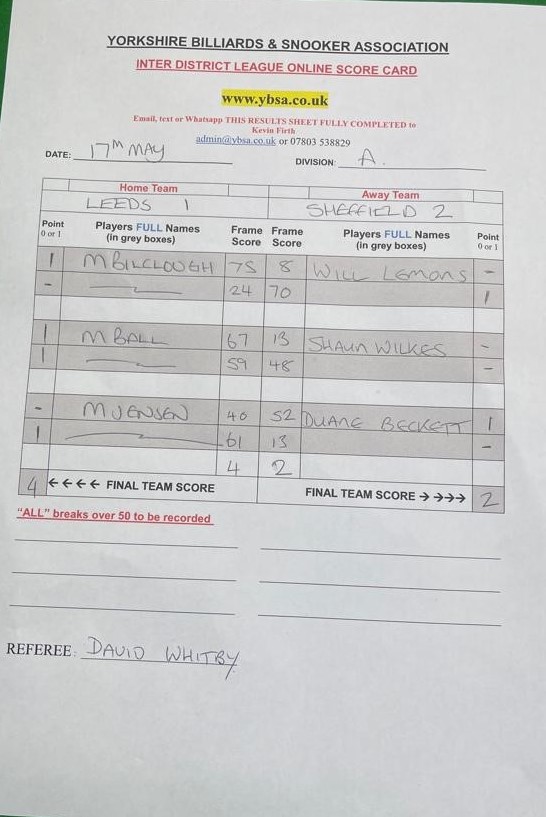 YORKSHIRE BILLIARDS & SNOOKER ASSOCIATION
INTER DISTRICT LEAGUE ONLINE SCORE CARD
www.ybsa.co.uk
Email, text or Whatsapp THIS RESULTS SHEET FULLY COMPLETED to
Kevin Firth
admin@ybsa.co.uk or 07803 538829
DATE: 17TH MAY DIVISION: A.
Home Team Away Team
LEEDS 1 SHEFFIELD 2
Point 0 or 1 Players FULL Names (in grey boxes) Frame Score Frame Score Players FULL Names (in grey boxes) Point 0 or 1
1 M BILCLOUGH 75 8 WILL LEMONS -
- 24 70 1
1 M BALL 67 13 SHAUN WILKES -
1 59 48 -
- M JENSEN 40 52 DUANE BECKETT 1
1 61 13 -
4 2
4 ←←←← FINAL TEAM SCORE FINAL TEAM SCORE →→→→ 2
"ALL" breaks over 50 to be recorded
REFEREE: DAVID WHITBY